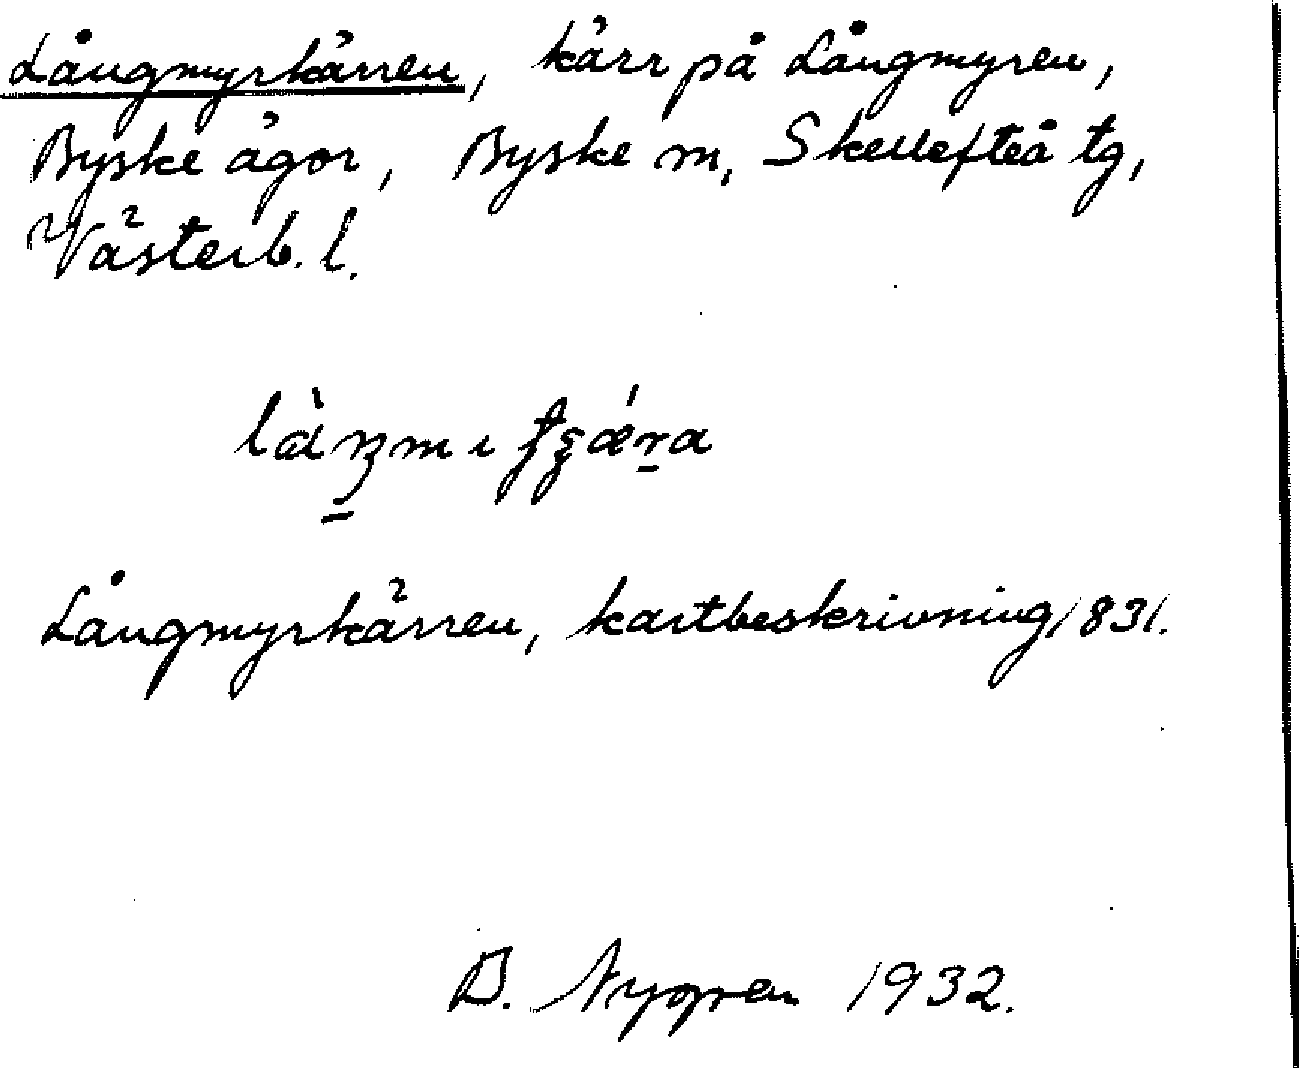 Långmyrkärren, kärr på Långmyren,
Byske ägor, Byske m, Skellefteå tg,
Västerb. l.
Långmyrkärren, kartbeskrivning 1831.
B. Nygren 1932.